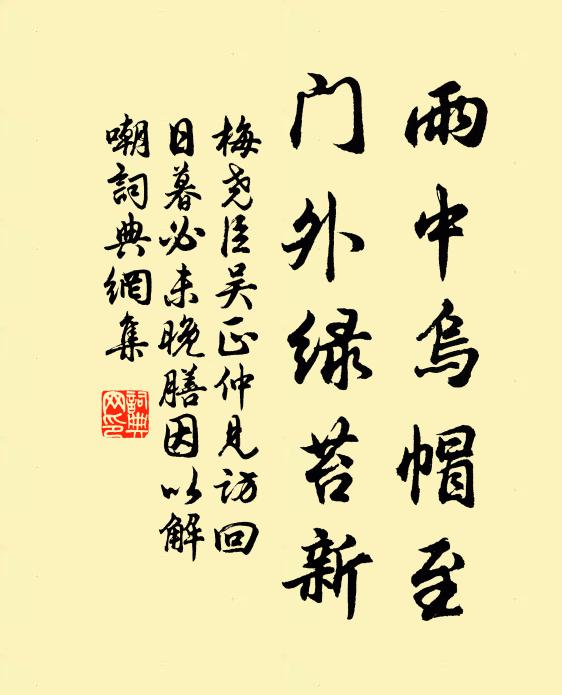 雨中烏帽至
门外绿苔新
梅尧臣吴正仲见访回
日暮必未晚膳因以解
嘲詞典網集
詞典网印